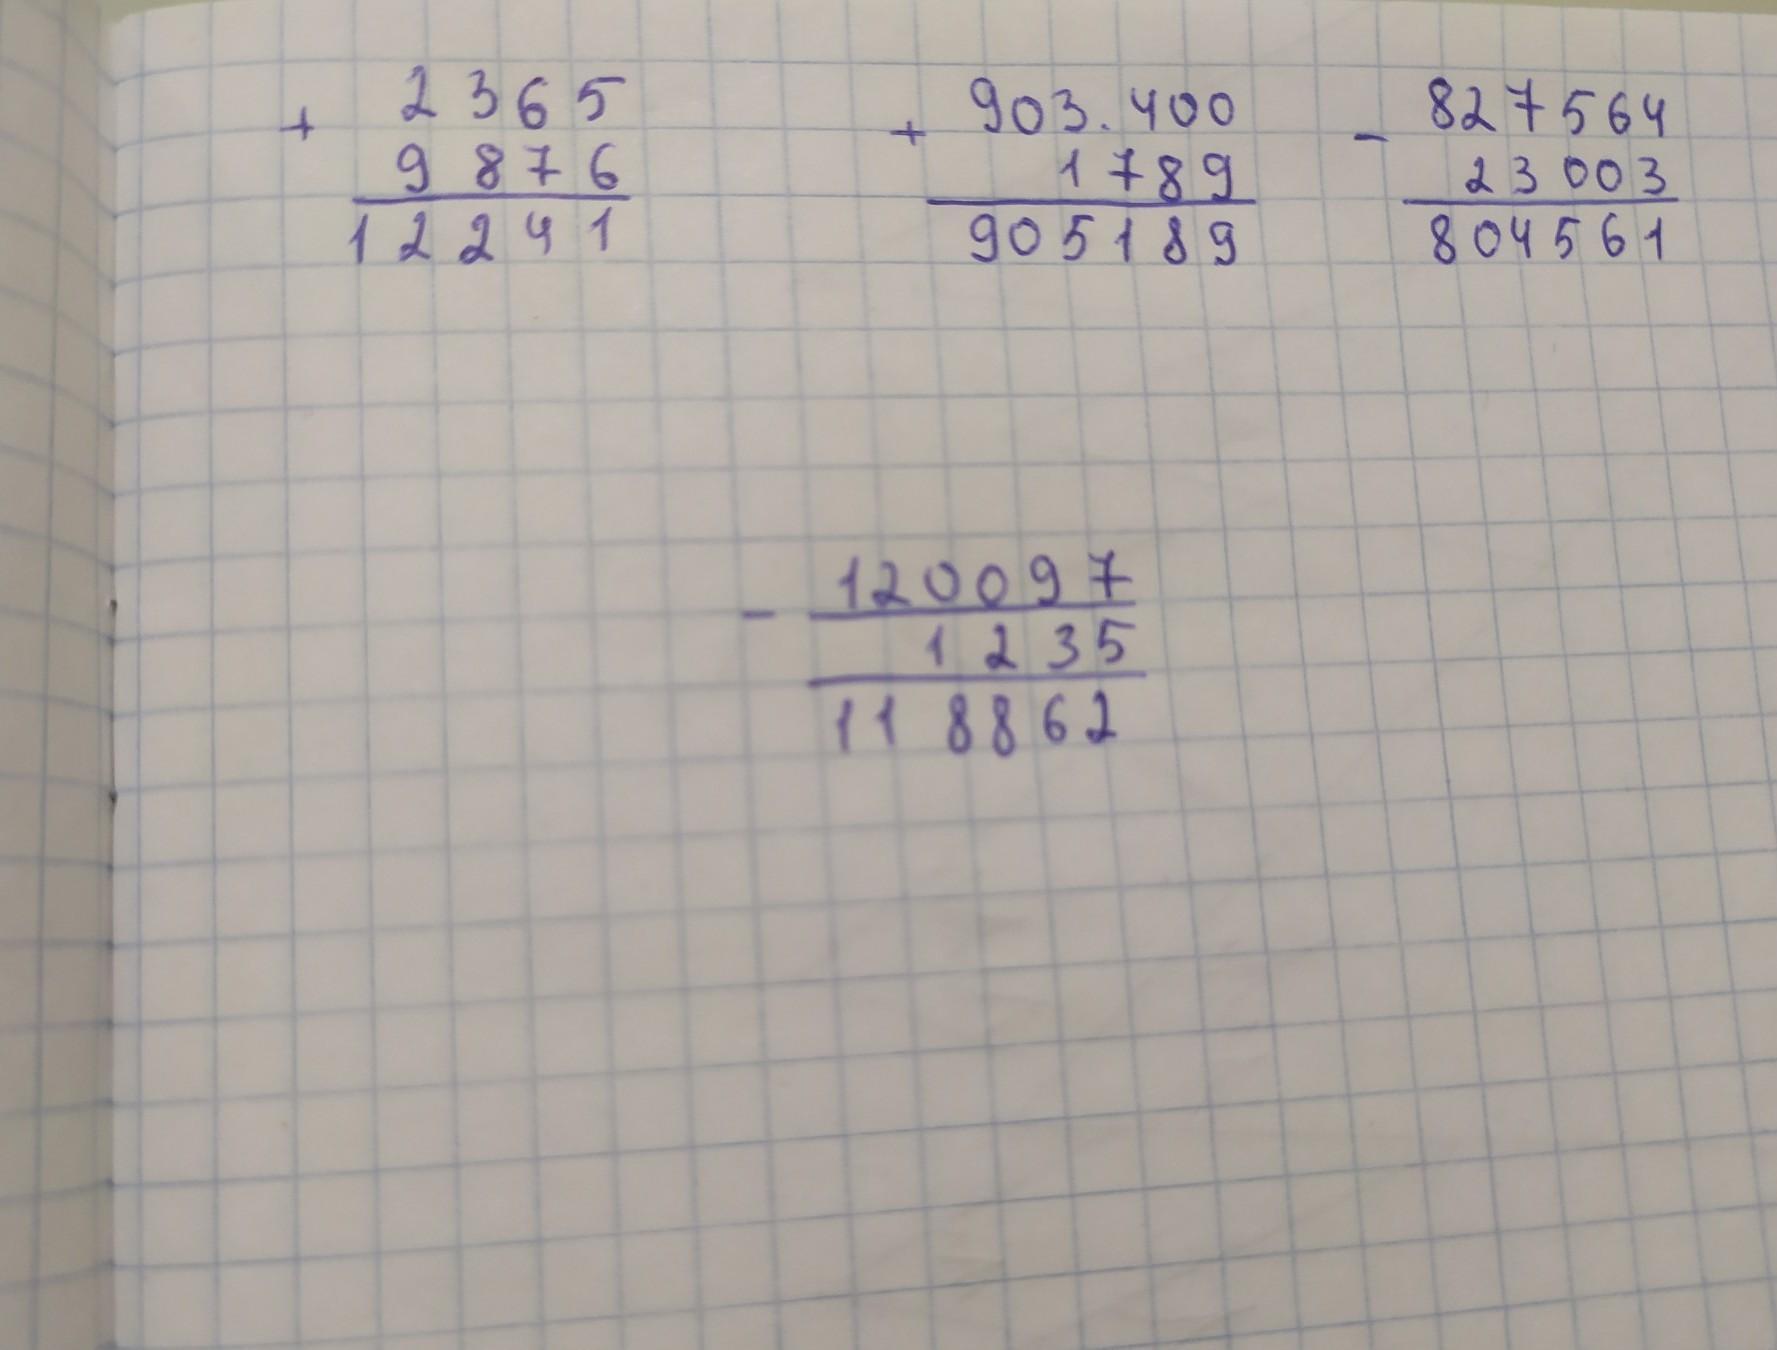 + 2365
9876
12241
+ 903.400
1789
905189
- 827564
23003
804561
- 120097
1235
118862